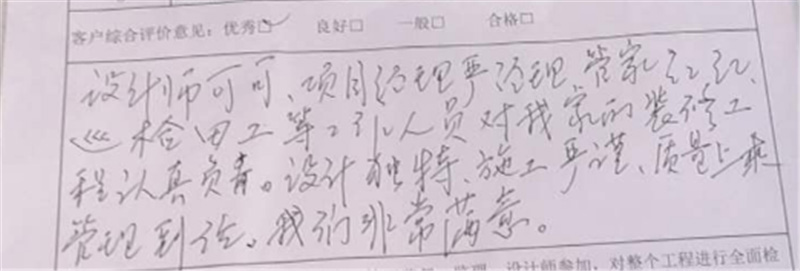 客户综合评价意见：优秀☑ 良好□ 一般□ 合格□
设计师可可、项目经理严经理 管家红红、
巡检田工等工作人员对我家的装修工
程认真负责。设计独特、施工严谨、质量上乘
管理到位。我们非常满意。
设计师参加，对整个工程进行全面检